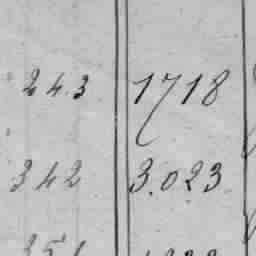 243 1718
342 3.023